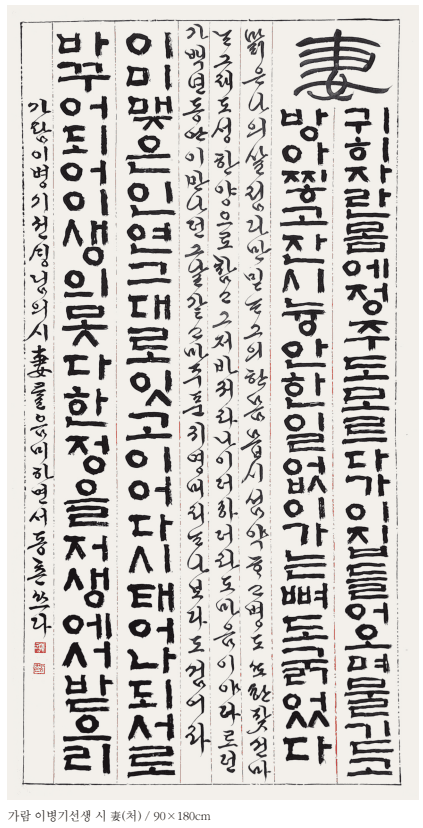 妻
귀히자란몸에정주도모르다가이집들어오며물긷고
방아찧고잔시늉안한일없이가는뼈도굵었다
맑은나의살림다만믿는그의한몸몹시섬약하고병도또한잦건마
는그래도성한양으로참고그저바쳐라나이더하더라도마음이야다르던
가백년동안이만나던그날같고마주푼귀영머리는나보다도검어라
이미맺은인연그대로잇고이어다시태어나되서로
바꾸어되어이생의못다한정을저생에서받으리
가람이병기선생님의시妻를음미하면서동촌쓰다
가람 이병기선생 시 妻(처) / 90×180cm